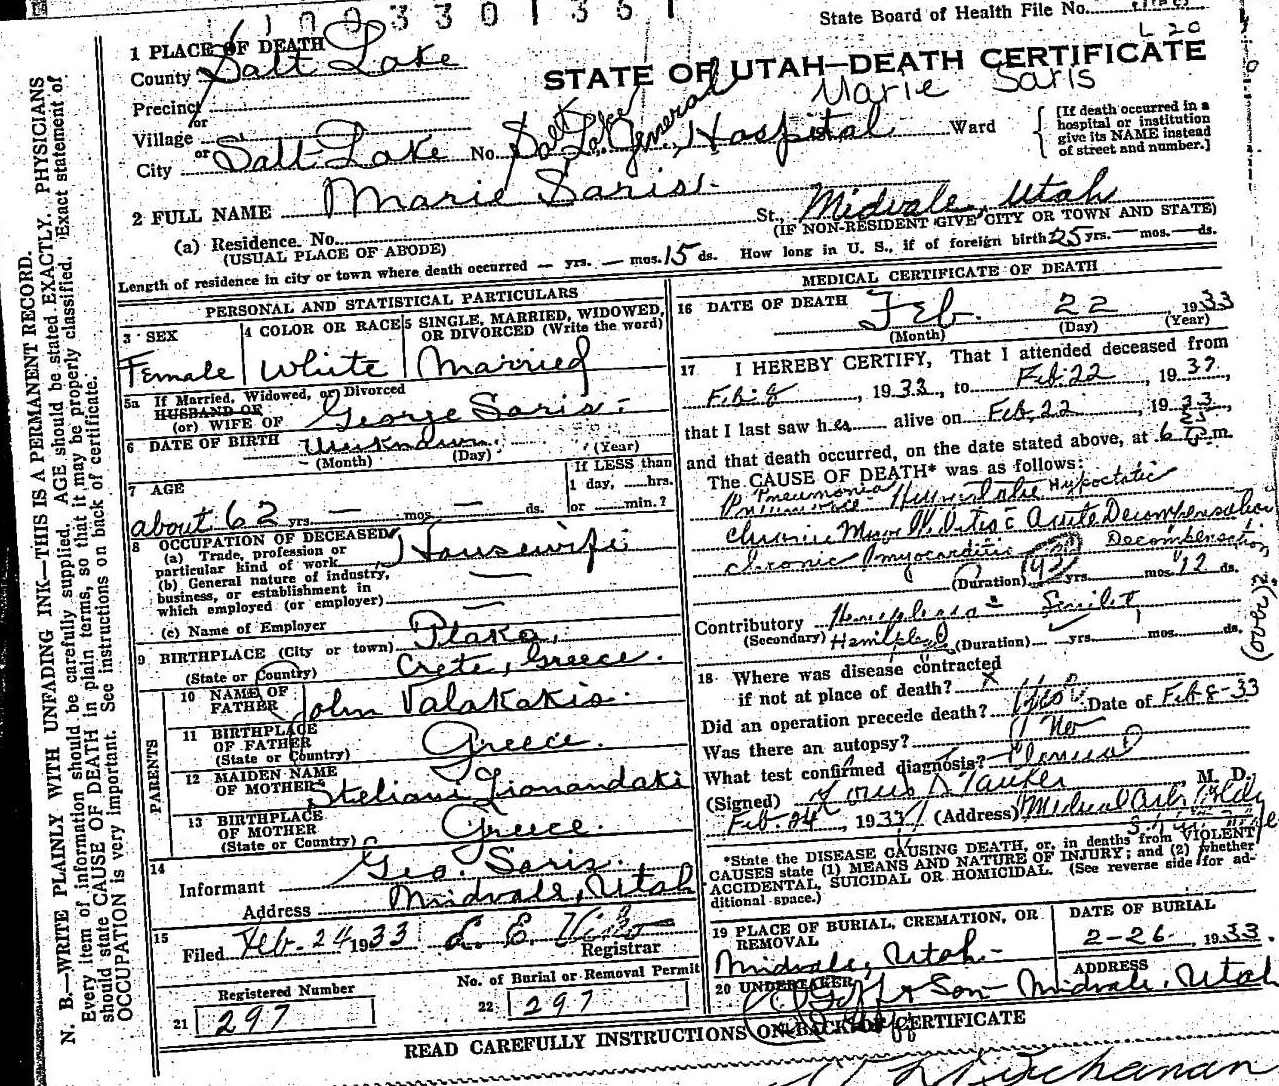 State Board of Health File No.
L 20
1 PLACE OF DEATH
County Salt Lake
STATE OF UTAH—DEATH CERTIFICATE
Marie Saris
Precinct
or
Village
or
City Salt Lake No. Salt Lake General Hospital Ward
[If death occurred in a
hospital or institution
give its NAME instead
of street and number.]
2 FULL NAME Marie Saris
(a) Residence. No. St., Midvale, Utah
(USUAL PLACE OF ABODE) (IF NON-RESIDENT GIVE CITY OR TOWN AND STATE)
Length of residence in city or town where death occurred — yrs. — mos. 15 ds. How long in U. S., if of foreign birth 25 yrs. — mos. — ds.
PERSONAL AND STATISTICAL PARTICULARS
3 SEX
Female
4 COLOR OR RACE
White
5 SINGLE, MARRIED, WIDOWED,
OR DIVORCED (Write the word)
Married
5a If Married, Widowed, or Divorced
HUSBAND OF
(or) WIFE OF George Saris
6 DATE OF BIRTH Unknown
(Month) (Day) (Year)
7 AGE
about 62 yrs. — mos. — ds.
If LESS than
1 day, ......hrs.
or ......min.?
8 OCCUPATION OF DECEASED
(a) Trade, profession or
particular kind of work Housewife
(b) General nature of industry,
business, or establishment in
which employed (or employer) —
(c) Name of Employer —
9 BIRTHPLACE (City or town) Plaka,
(State or Country) Crete, Greece.
PARENTS
10 NAME OF
FATHER John Valakakis.
11 BIRTHPLACE
OF FATHER Greece.
(State or Country)
12 MAIDEN NAME
OF MOTHER Steliani
13 BIRTHPLACE
OF MOTHER Greece.
(State or Country)
14
Informant Geo. Saris.
Address Midvale, Utah
15
Filed Feb. 24 1933 L. E.
Registrar
Registered Number
21 297
No. of Burial or Removal Permit
22 297
MEDICAL CERTIFICATE OF DEATH
16 DATE OF DEATH Feb. 22 1933
(Month) (Day) (Year)
17 I HEREBY CERTIFY, That I attended deceased from
Feb. 8, 1933, to Feb. 22, 1933,
that I last saw her alive on Feb. 22, 1933,
and that death occurred, on the date stated above, at 6 m.
The CAUSE OF DEATH* was as follows:
Pneumonia Hypostatic
Chronic Acute Decompensation
Chronic myocarditis Decompensation
(Duration) yrs. mos. 12 ds.
Contributory Hemiplegia
(Secondary) (Duration) yrs. mos. ds.
(over) 2
18 Where was disease contracted
if not at place of death? x
Did an operation precede death? Date of Feb 8-33
Was there an autopsy? No
What test confirmed diagnosis? Clinical
(Signed) Louis, M. D.
Feb. 24, 1933 (Address) Medical Arts Bldg
*State the DISEASE CAUSING DEATH, or, in deaths from VIOLENT
CAUSES state (1) MEANS AND NATURE OF INJURY; and (2) whether
ACCIDENTAL, SUICIDAL OR HOMICIDAL. (See reverse side for ad-
ditional space.)
19 PLACE OF BURIAL, CREMATION, OR
REMOVAL
Midvale, Utah
DATE OF BURIAL
2-26, 1933.
20 UNDERTAKER
Goff & Son
ADDRESS
Midvale, Utah
READ CAREFULLY INSTRUCTIONS ON BACK OF CERTIFICATE
Buchanan
N. B.—WRITE PLAINLY WITH UNFADING INK—THIS IS A PERMANENT RECORD.
Every item of information should be carefully supplied. AGE should be stated EXACTLY. PHYSICIANS
should state CAUSE OF DEATH in plain terms, so that it may be properly classified. Exact statement of
OCCUPATION is very important. See instructions on back of certificate.